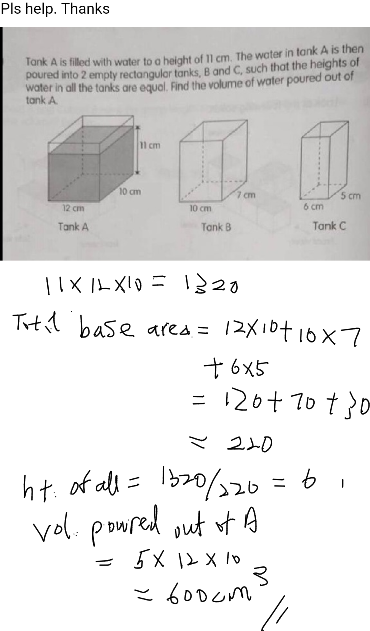 Pls help. Thanks
Tank A is filled with water to a height of 11 cm. The water in tank A is then
poured into 2 empty rectangular tanks, B and C, such that the heights of
water in all the tanks are equal. Find the volume of water poured out of
tank A.
11 cm
10 cm
12 cm
Tank A
7 cm
10 cm
Tank B
5 cm
6 cm
Tank C
11 x 12 x 10 = 1320
Total base area = 12x10 + 10 x 7
+ 6x5
= 120 + 70 + 30
= 220
ht. of all = 1320/220 = 6
Vol. poured out of A
= 5 x 12 x 10
= 600 cm³ //